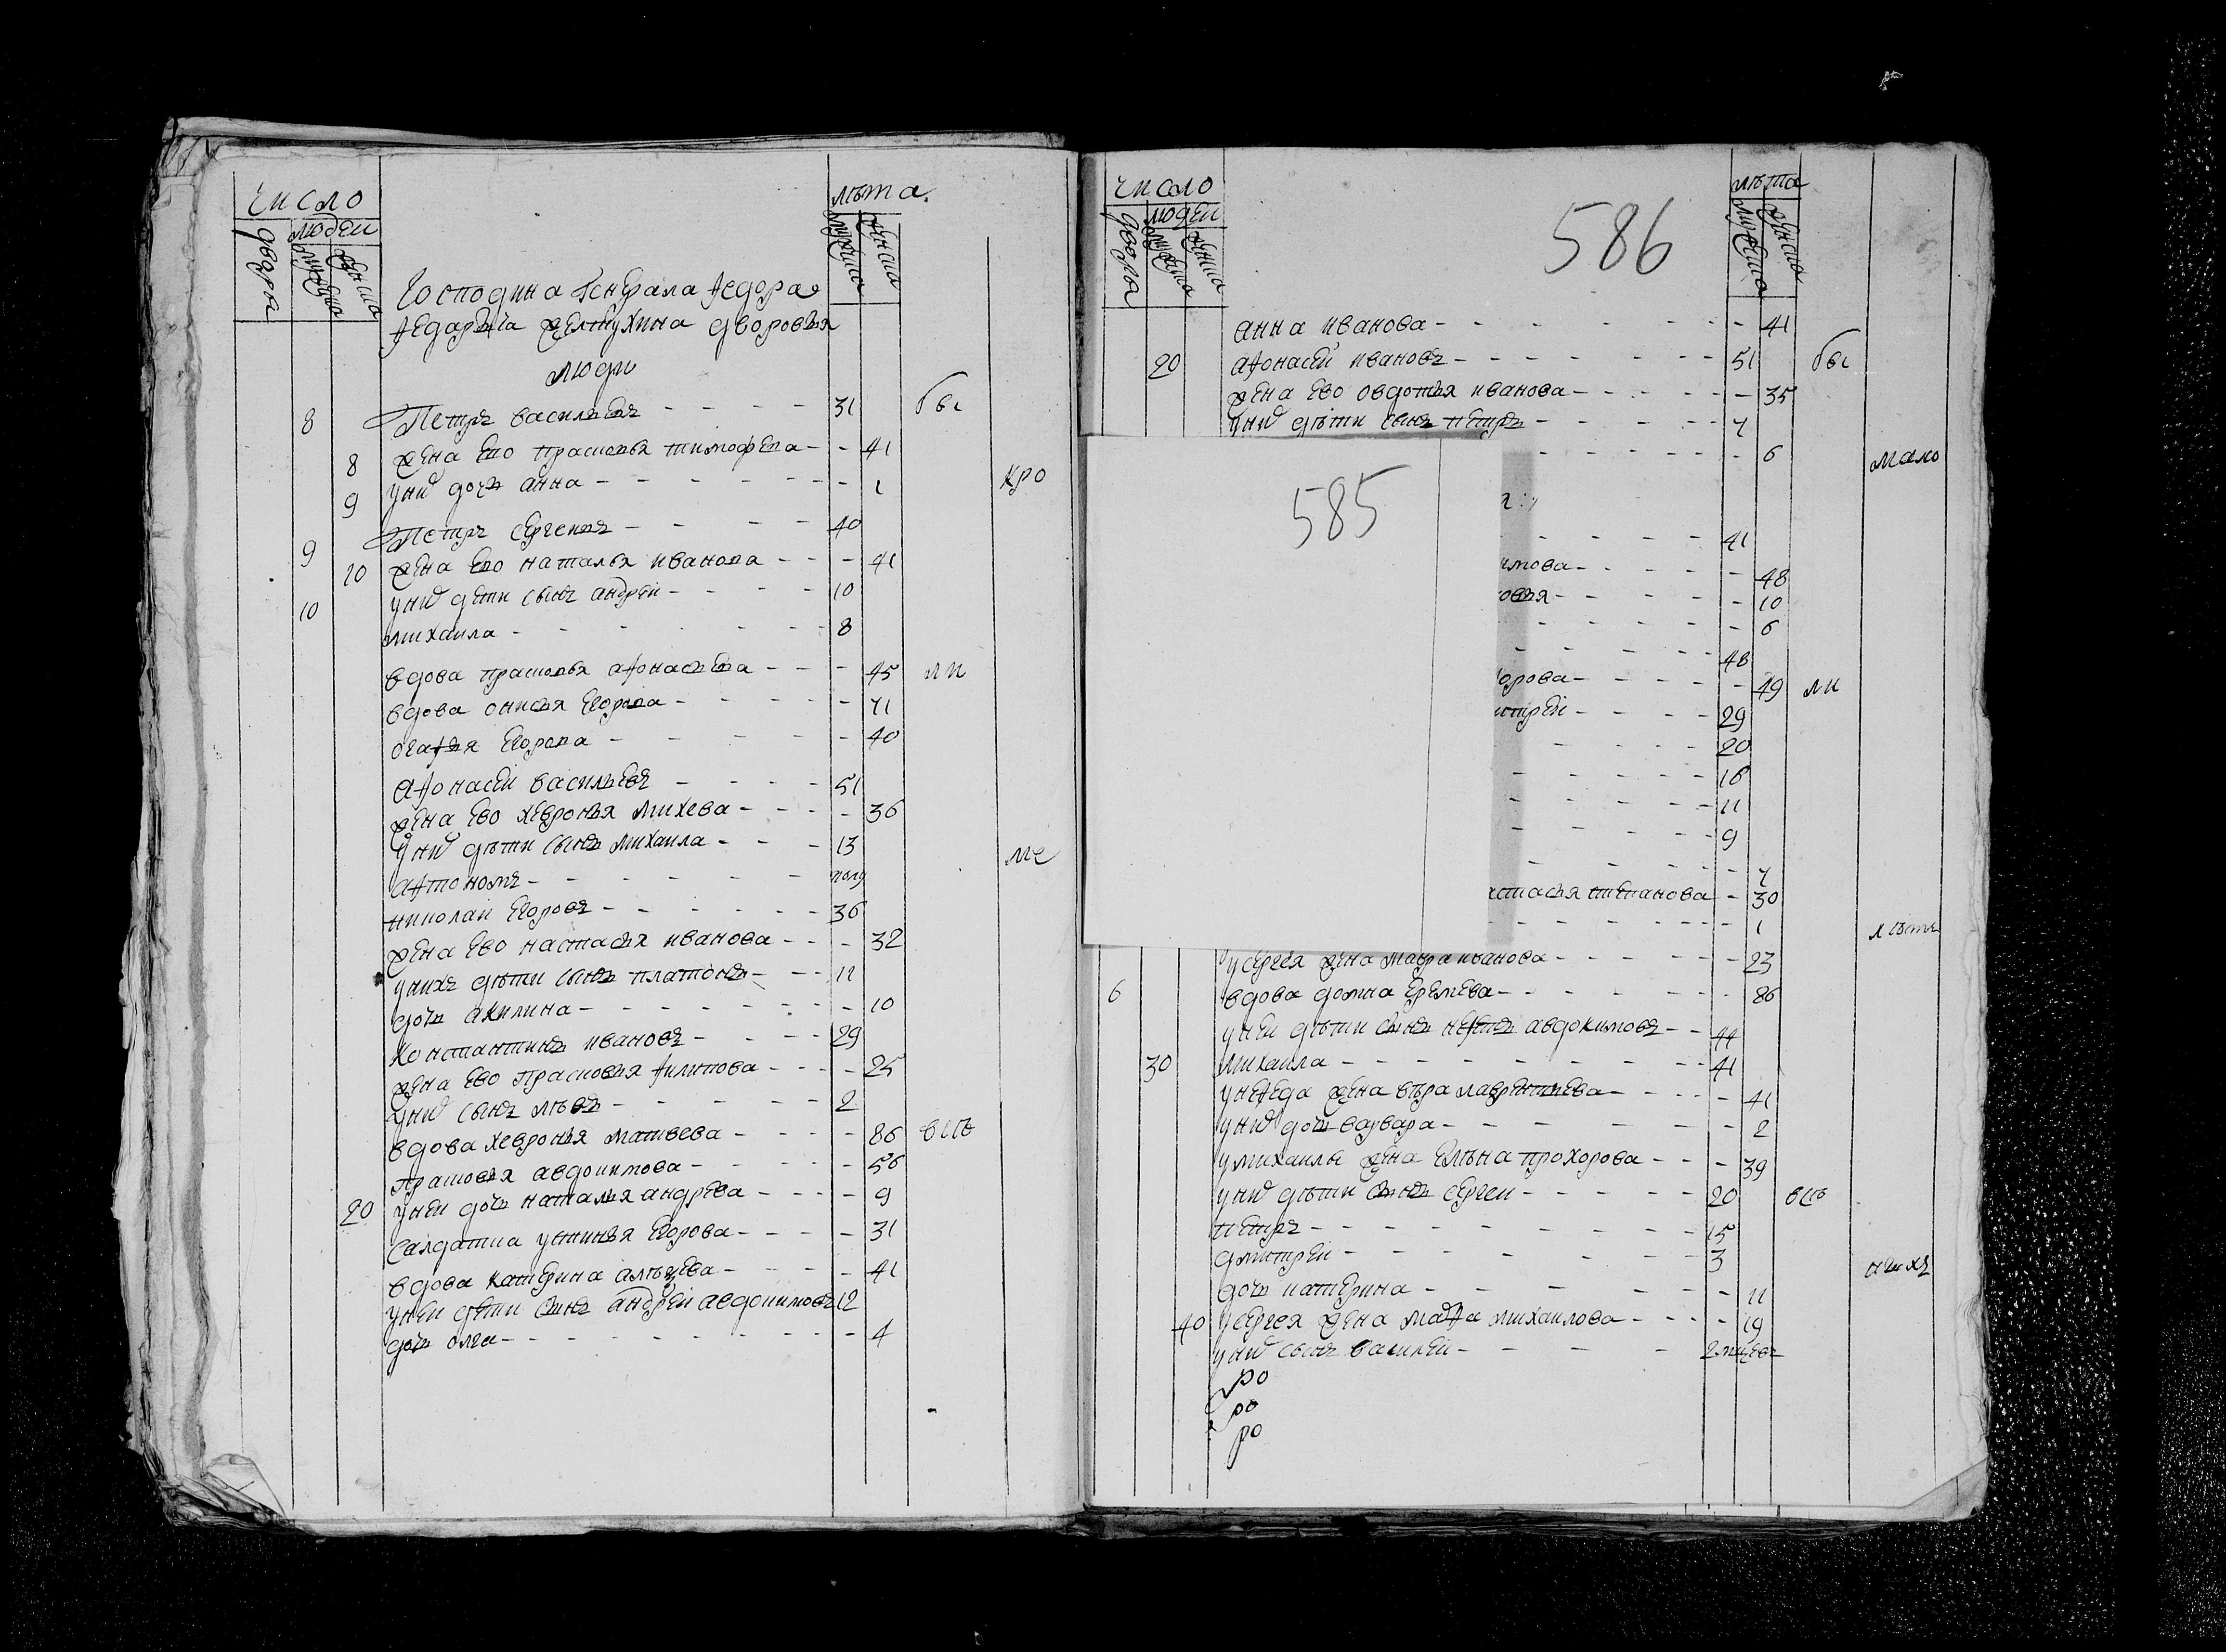 число
лѣта.
двора
людеи
мужеска
женска
мужеска
женска
Господина Генерала Ѳедора
Ѳедарыча Желтухина дворовыя
люди
8 Петръ васильевъ - - - - 31 бы
8 жена ево прасковья тимофева - - 41
9 униͯ дочь анна - - - - - - 1 кро
9 Петръ сергеевъ - - - - 40
10 жена ево наталья иванова - - - 41
10 униͯ дети сынъ андреи - - - - 10
михаила - - - - - - 8
вдова прасковья аѳонасьева - - - 45 ли
вдова онисья Егорова - - - - - 71
огаѳья Егорова - - - - - - 40
аѳонасеи васильевъ - - - - 51
жена ево хевронья михева - - - - 36
униͯ дѣти сынъ михаила - - - 13 ме
аѳтономъ - - - - - - полу
николаи Егоровъ - - - - - - 36
жена ево настасья иванова - - - 32
унихъ дѣти сынъ платонъ - - - 11
дочь акилина - - - - - - - 10
Константинъ ивановъ - - - - 29
жена ево прасковья Филипова - - - - 25
униͯ сынъ лѣвъ - - - - - - 2
вдова хевронья матвева - - - - 86 всѣ
прасковья авдокимова - - - - - 56
20 унеи дочь наталья андрева - - - - 9
салдатка устинья Егорова - - - - 31
вдова катерина алѣѯева - - - - 41
унеи дети сынъ андреи авдокимовъ 12
дочь олга - - - - - - - - - 4
число
лѣта
двора
людеи
мужеска
женска
мужеска
женска
586
анна иванова - - - - - - - - 41
20 аѳонасеи ивановъ - - - - - - - 51 бы
жена ево овдотья иванова - - - - - - 35
униͯ дѣти сынъ петръ - - - - - 7
- - - - - - 6 мало
585
- - - - - 41
имова - - - - - 48
овья - - - - - 10
- - - - - - 6
- - - - - 48
орова - - - - - - 49 ли
итреи - - - - 29
- - - - - 20
- - - - - 16
- - - - - 11
- - - - - 9
- - - - - 7
астасья степанова - 30
- - - - - - 1 лѣтъ
усергея жена мавра иванова - - - - - - 23
6 вдова домна Еремева - - - - - - 86
унеи дѣти сынъ неѳедъ авдокимовъ - - 44
30 михаила - - - - - - - - - 41
унеѳеда жена вѣра лаврентиева - - - - - 41
униͯ дочь варвара - - - - - - - 2
умихаилы жена Елѣна прохорова - - - 39
униͯ дѣти сынъ сергеи - - - - - 20 всѣ
петръ - - - - - - - - 15
дмитреи - - - - - - - 3
дочь катерина - - - - - - - 11 нихъ
40 усергея жена марѳа михаилова - - - - 19
униͯ сынъ василеи - - - - -
ро
ро
ро